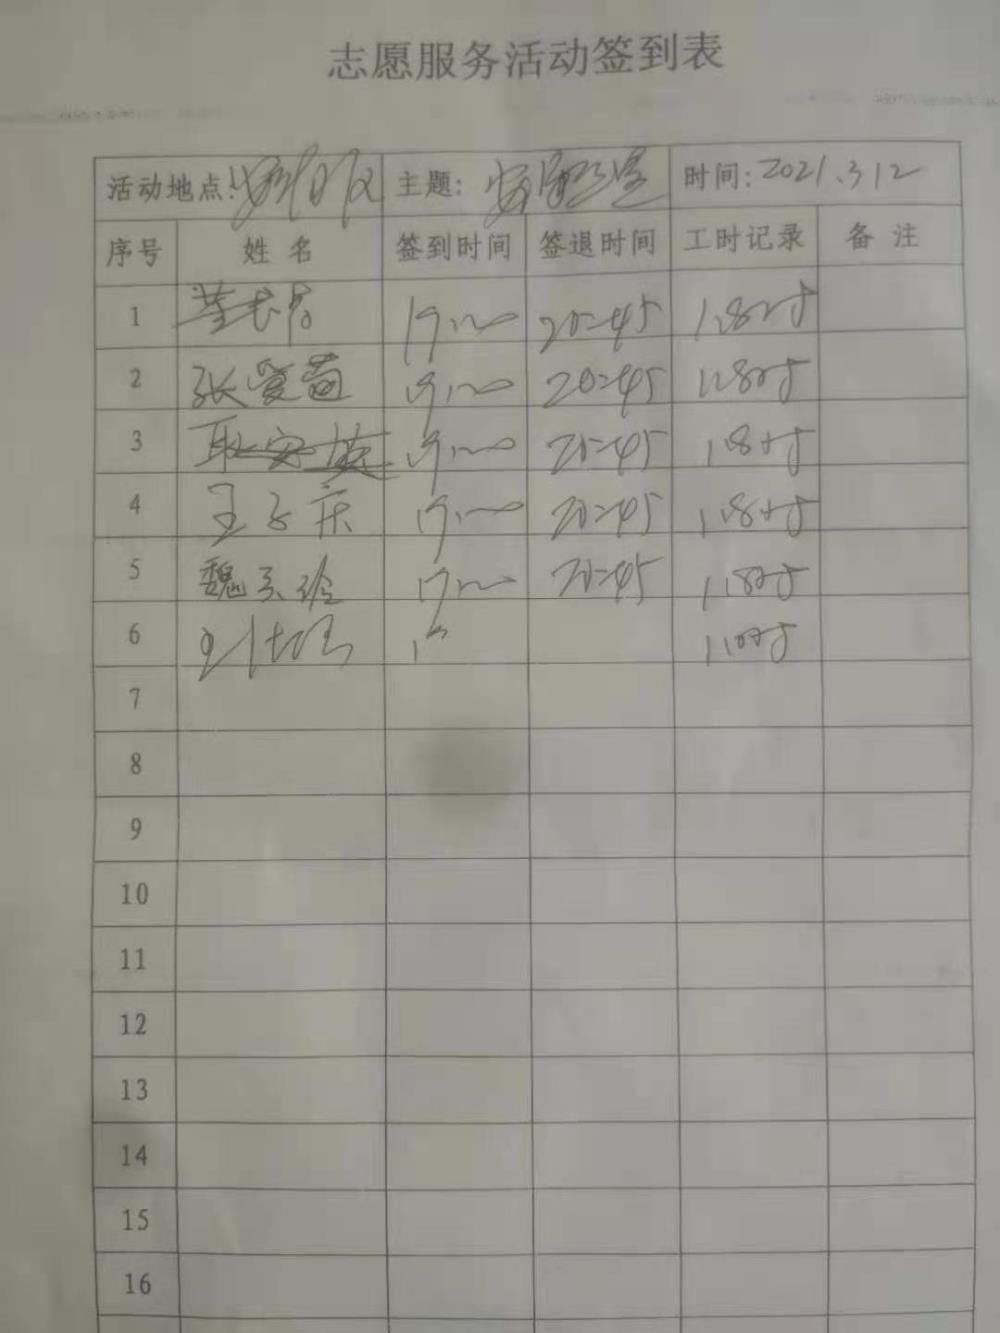 志愿服务活动签到表
活动地点: 主题: 时间: 2021.3 12
序号 姓 名 签到时间 签退时间 工时记录 备 注
1 19:00 20:45 1.8时
2 张爱苗 19:00 20:45 1.8时
3 耿安英 19:00 20:45 1.8时
4 王子庆 19:00 20:45 1.8时
5 魏玉珍 19:00 20:45 1.8时
6
7
8
9
10
11
12
13
14
15
16